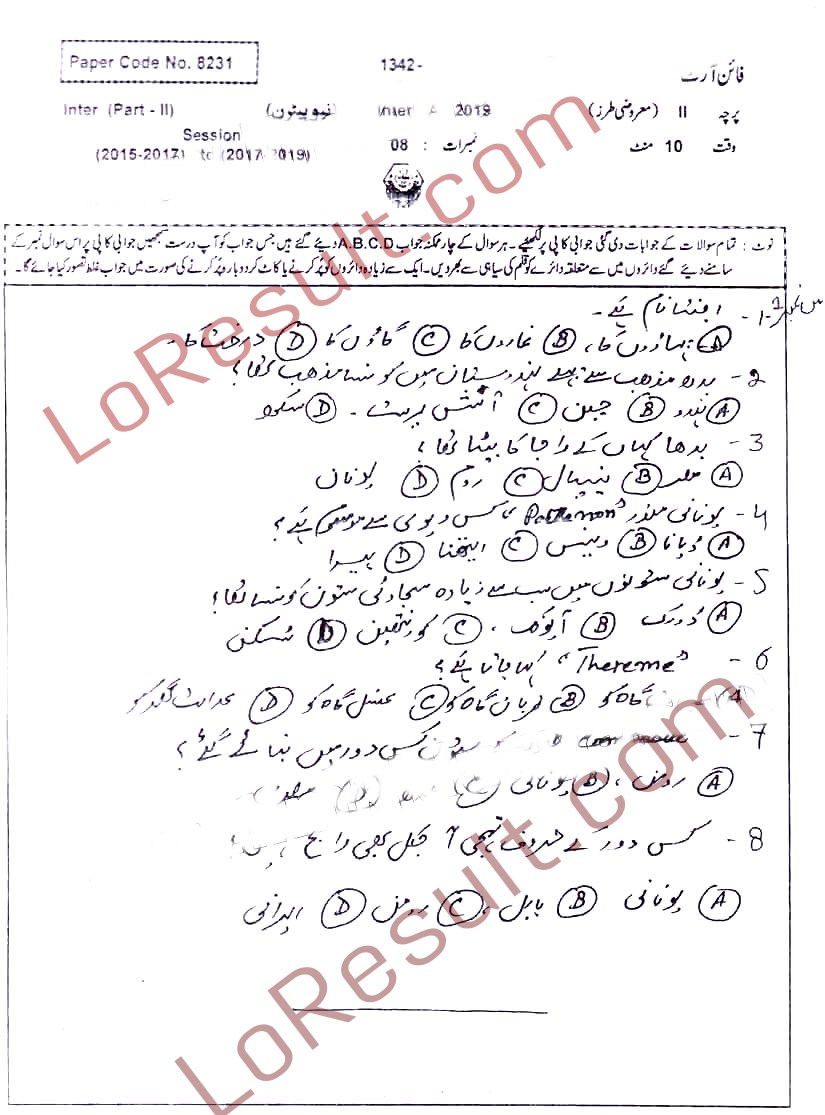 Paper Code No. 8231
1342-
فائن آرٹ
Inter (Part - II)
(نیو پیٹرن)
Inter A 2019
پرچہ II (معروضی طرز)
Session
(2015-2017) to (2017-2019)
نمبرات : 08
وقت 10 منٹ
نوٹ : تمام سوالات کے جوابات دی گئی جوابی کاپی پر لکھیے۔ ہر سوال کے چار ممکنہ جواب A,B,C,D دیئے گئے ہیں جس جواب کو آپ درست سمجھیں جوابی کاپی پر اس سوال نمبر کے
سامنے دیئے گئے دائروں میں سے متعلقہ دائرے کو قلم کی سیاہی سے بھر دیں۔ ایک سے زیادہ دائروں کو پُر کرنے یا کاٹ کر دوبارہ پُر کرنے کی صورت میں جواب غلط تصور کیا جائے گا۔
س نمبر 1 - 1- اجنتا نام ہے۔
A پہاڑوں کا، B غاروں کا C گاؤں کا D درخت کا۔
2 - بدھ مذہب سے پہلے ہندوستان میں کونسا مذہب تھا؟
A ہندو B جین C آتش پرست۔ D سکھ
3 - بدھا کہاں کے راجا کا بیٹا تھا؟
A مصر B نیپال C روم D یونان
4 - یونانی مندر "Pathenon" کس دیوی سے موسوم ہے؟
A ڈیانا B وینس C ایتھنا D ہیرا
5 - یونانی ستونوں میں سب سے زیادہ سجاوٹی ستون کونسا تھا؟
A ڈورک B آیونک، C کورنتھین D ٹسکنی
6 - "Thereme" کہا جاتا ہے؟
A گاہ کو B قربان گاہ کو C غسل گاہ کو D عدالت گاہ کو
7 - ستون کس دور میں بنائے گئے؟
A رومن، B یونانی C D
8 - کس دور کے حروف تہجی آجکل بھی رائج ہیں؟
A یونانی B بابل، C رومن D ایرانی
LoResult.com
LoResult.com
LoResult.com